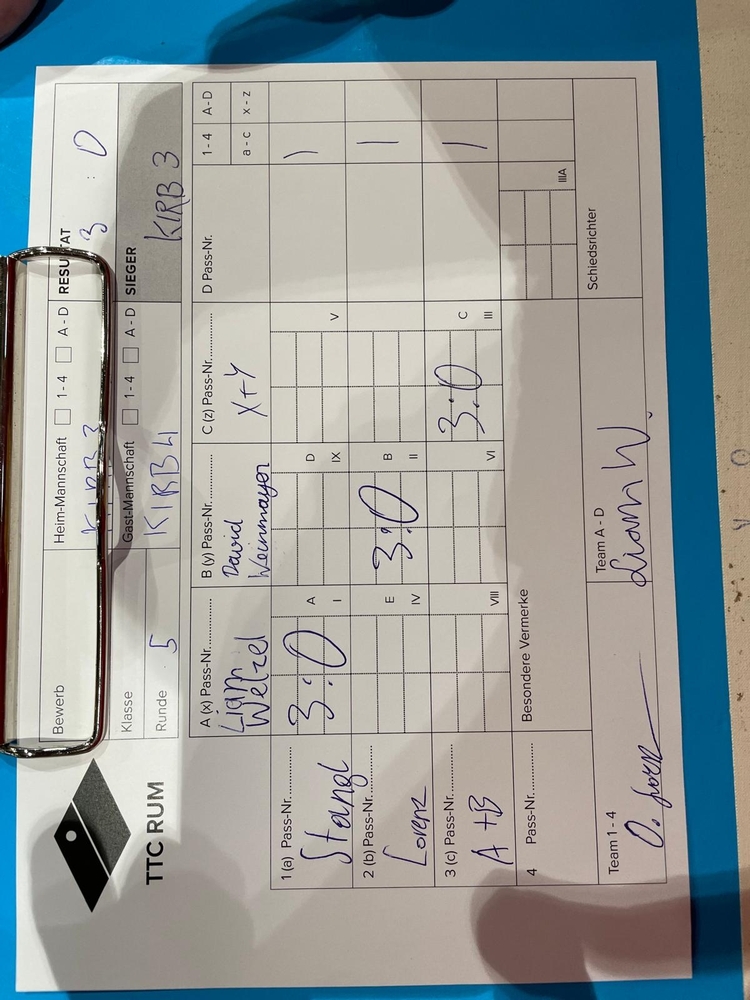 TTC RUM
Bewerb
Heim-Mannschaft 1 - 4 A - D
KIRB 3
RESULTAT
3 : 0
Klasse
Gast-Mannschaft 1 - 4 A - D
KIRB 4
SIEGER
KIRB 3
Runde 5
A (x) Pass-Nr.
Liam
Welzel
B (y) Pass-Nr.
David
Weinmayer
C (z) Pass-Nr.
X+Y
D Pass-Nr.
1 - 4 A - D
a - c x - z
1 (a) Pass-Nr.
Stangl
3:0
A
I
D
IX
V
1
2 (b) Pass-Nr.
Lorenz
E
IV
3:0
B
II
1
3 (c) Pass-Nr.
A+B
VIII
VI
3:0
C
III
1
4 Pass-Nr.
Besondere Vermerke
IIIA
Team 1 - 4
Team A - D
Liam W.
Schiedsrichter